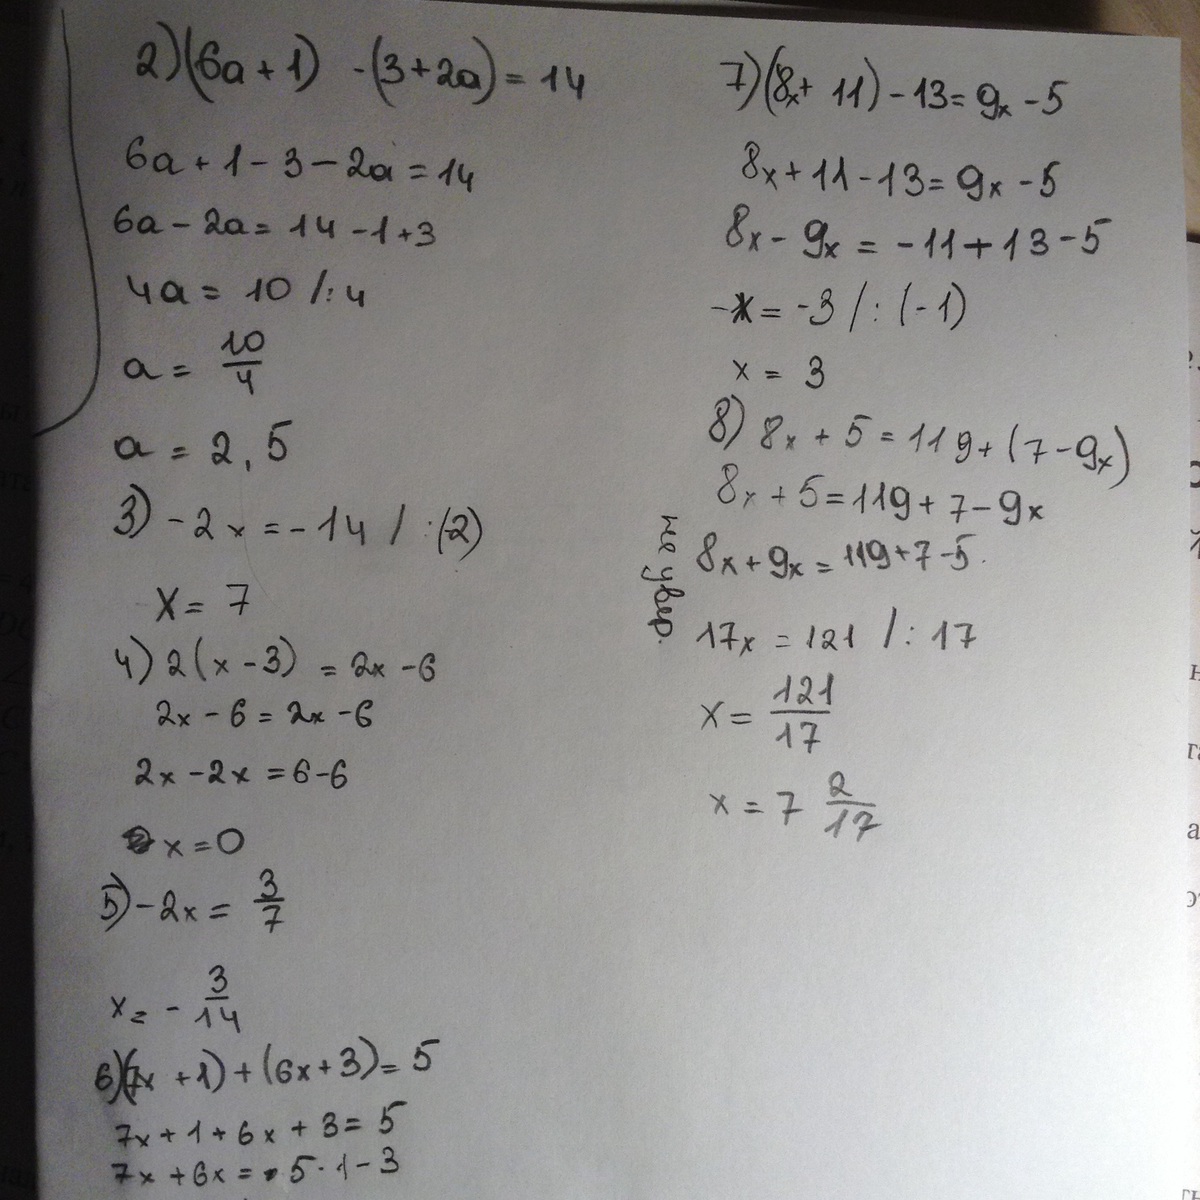 2) (6a + 1) - (3 + 2a) = 14
6a + 1 - 3 - 2a = 14
6a - 2a = 14 - 1 + 3
4a = 10 /: 4
a = 10/4
a = 2,5
3) -2x = -14 / :(-2)
x = 7
4) 2(x - 3) = 2x - 6
2x - 6 = 2x - 6
2x - 2x = 6 - 6
x = 0
5) -2x = 3/7
x = - 3/14
6) (7x + 1) + (6x + 3) = 5
7x + 1 + 6x + 3 = 5
7x + 6x = 5 - 1 - 3
7) (8x + 11) - 13 = 9x - 5
8x + 11 - 13 = 9x - 5
8x - 9x = -11 + 13 - 5
-x = -3 / : (-1)
x = 3
8) 8x + 5 = 119 + (7 - 9x)
8x + 5 = 119 + 7 - 9x
8x + 9x = 119 + 7 - 5
17x = 121 /: 17
x = 121/17
x = 7 2/17
не увер.